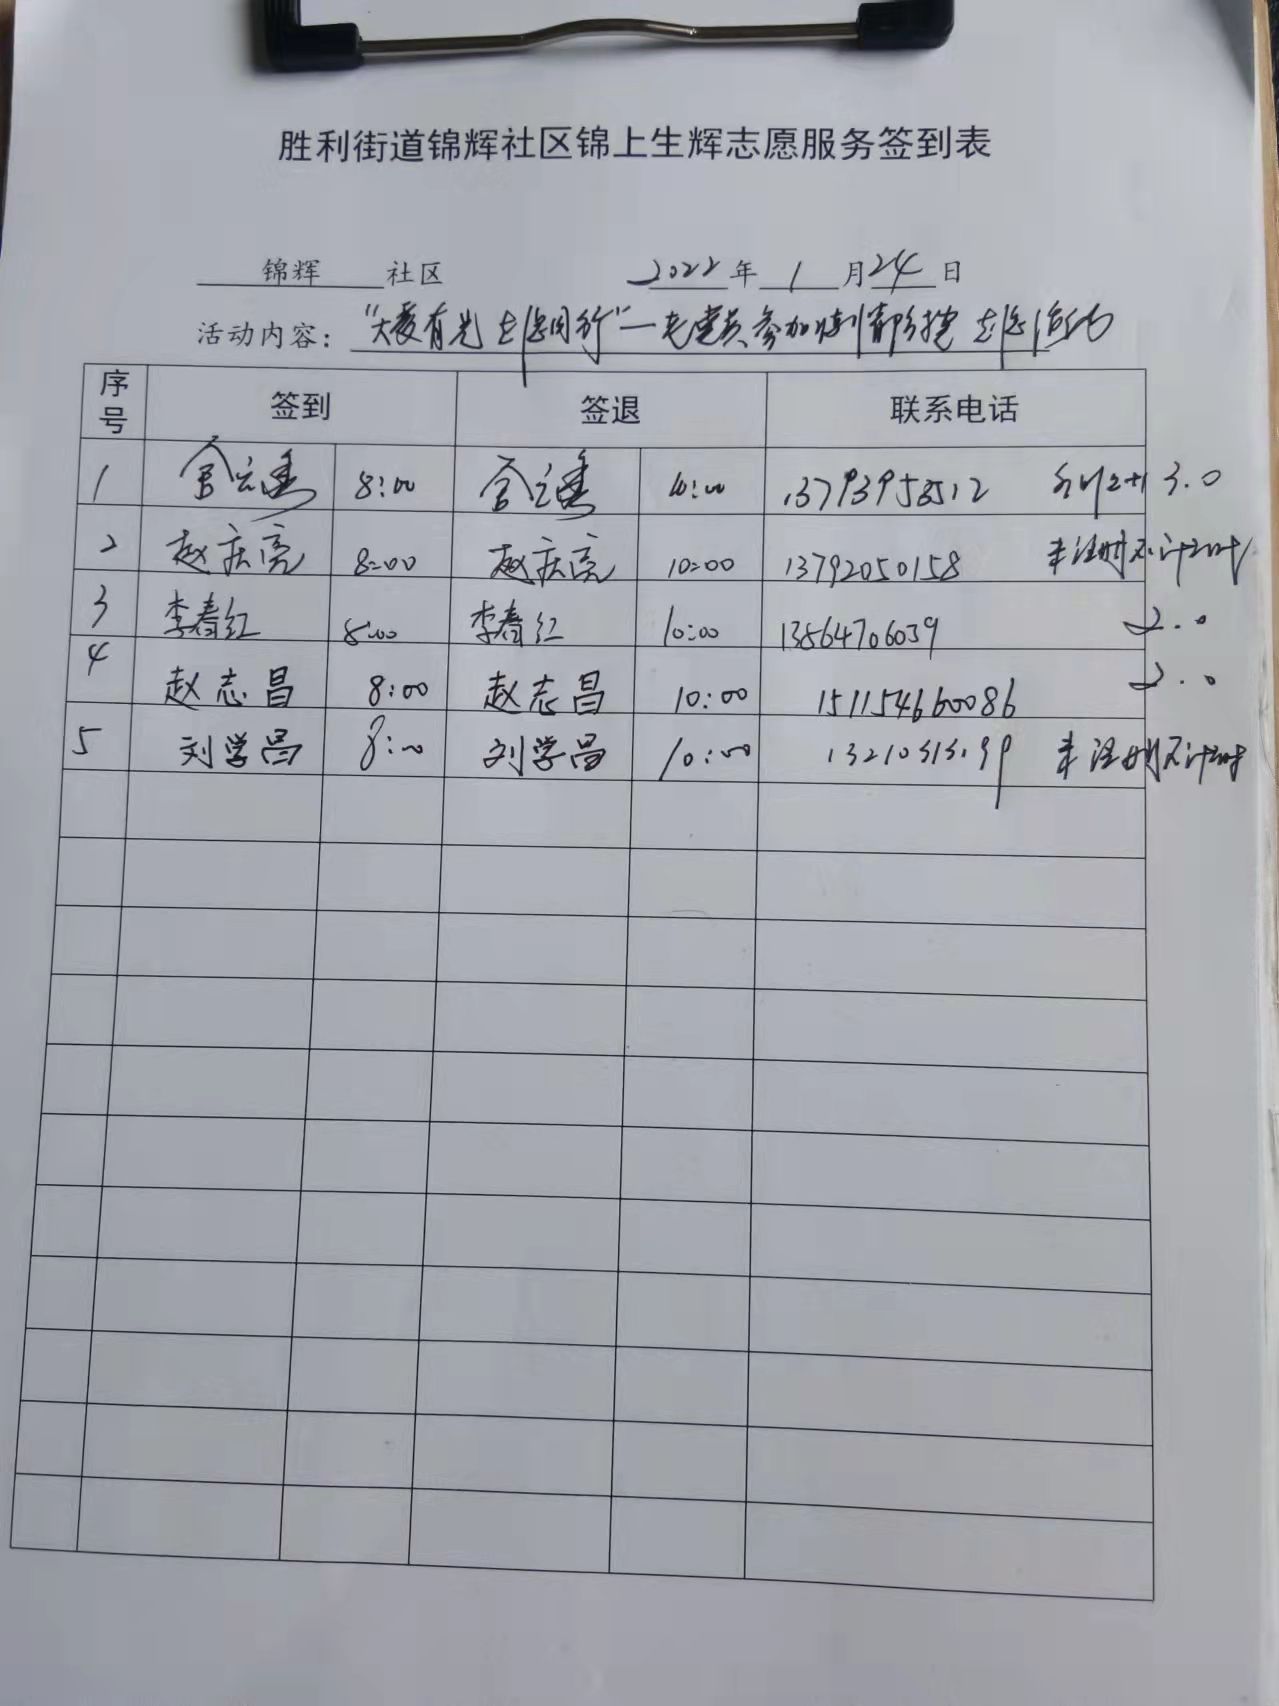 胜利街道锦辉社区锦上生辉志愿服务签到表
锦辉 社区 2022年1月24日
活动内容："大爱有光 志愿同行"一老党员参加 志愿活动
序号 签到 签退 联系电话
1 8:00 10:00 13793953512 3.0
2 赵庆亮 8:00 赵庆亮 10:00 13792050158 未注册不计时
3 李春红 8:00 李春红 10:00 13564706039 2.0
4 赵志昌 8:00 赵志昌 10:00 151154660086 2.0
5 刘学昌 8:00 刘学昌 10:00 未注册不计时